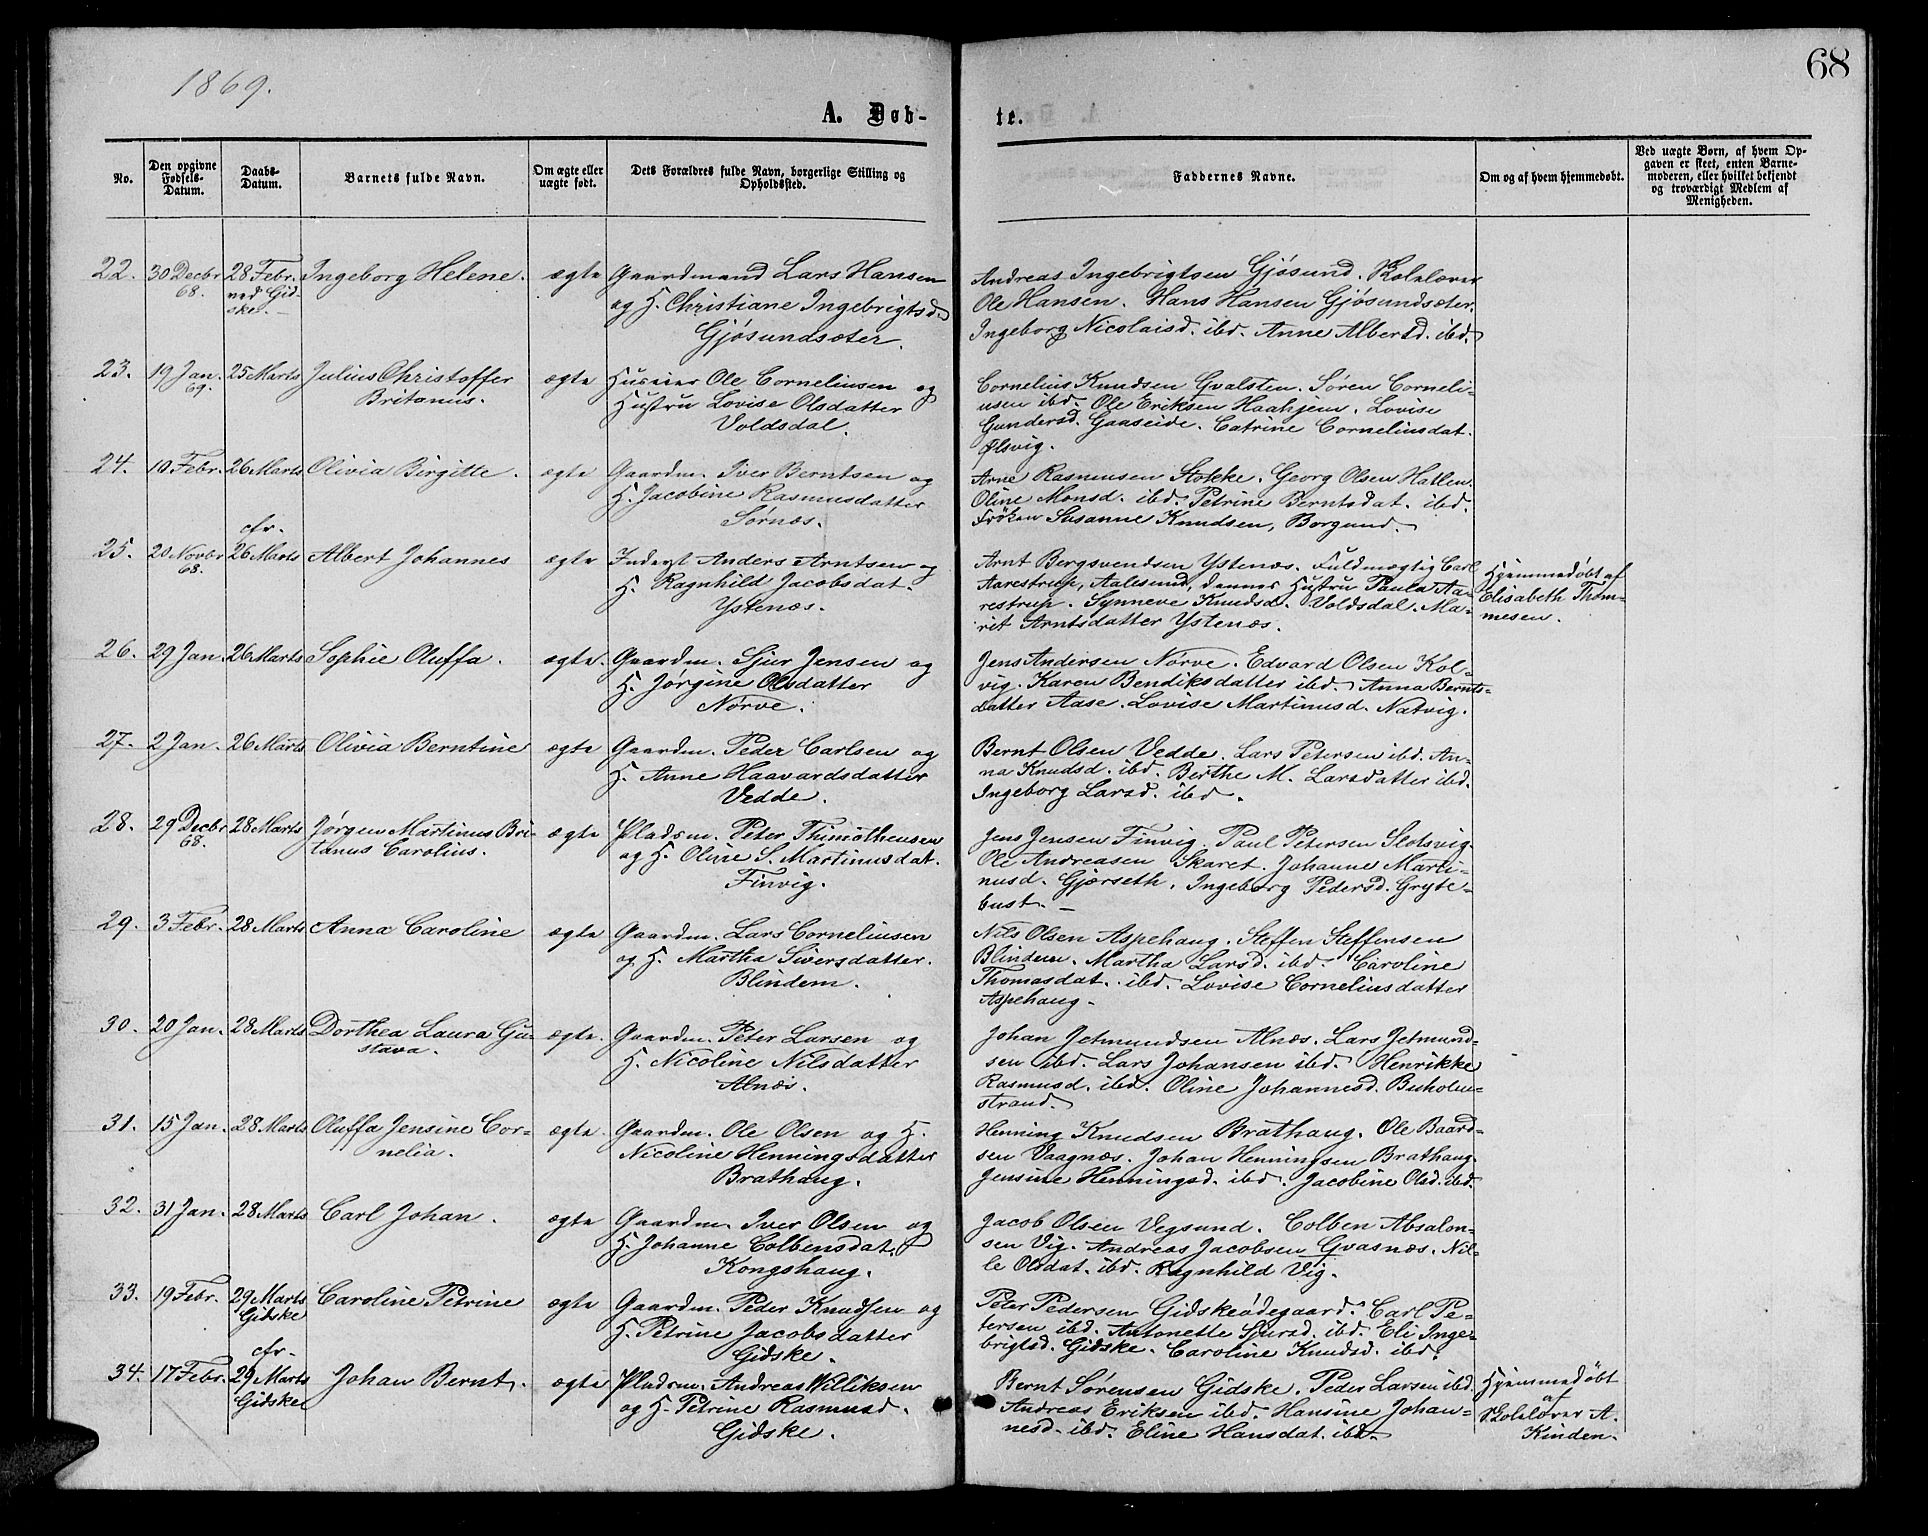 1869.
68
A. Døb-
te.
No.
Den opgivne
Fødsels-
Datum.
Daabs-
Datum.
Barnets fulde Navn.
Om ægte eller
uægte født.
Dets Forældres fulde Navn, borgerlige Stilling og
Opholdssted.
Faddernes Navne.
Om og af hvem hjemmedøbt.
Ved uægte Børn, af hvem Op-
gaven er skeet, enten Barne-
moderen, eller hvilket bekjendt
og troværdigt Medlem af
Menigheden.
22. 30 Decbr 68.
28 Febr.
ved Gid-
ske.
Ingeborg Helene.
ægte
Gaardmand Lars Hansen
og H. Christiane Ingebrigtsd.
Gjøsundsæter.
Andreas Ingebrigtsen Gjøsund. Skolelærer
Ole Hansen. Hans Hansen Gjøsundsæter.
Ingeborg Nicolaisd. ibd. Anne Albertsd. ibd.
23. 19 Jan. 69.
25 Marts
Julius Christoffer
Britanus.
ægte
Huseier Ole Corneliusen og
Hustru Lovise Olsdatter
Voldsdal.
Cornelius Knudsen Gvalsten. Søren Corneli-
usen ibd. Ole Eriksen Haahjem. Lovise
Gundersd. Gaaseide. Catrine Corneliusdat.
Ølsvig.
24. 10 Febr.
26 Marts
Olivia Birgitte.
ægte
Gaardm. Iver Berntsen og
H. Jacobine Rasmusdatter
Sørnæs.
Arne Rasmusen Stokke. Georg Olsen Hatlen.
Oline Monsd. ibd. Petrine Berntsdat. ibd.
Frøken Susanne Knudsen, Borgund.
25. 20 Novbr 68.
cfr.
26 Marts
Albert Johannes
ægte
Inderst Anders Arntsen og
H. Ragnhild Jacobsdat.
Ystenæs.
Arnt Bergsvendsen Ystenæs. Fuldmægtig Carl
Aarestrup, Aalesund, dennes Hustru Paula Aa-
restrup. Synneve Knudsd. Voldsdal. Ma-
rit Arntsdatter Ystenæs.
Hjemmedøbt af
Elisabeth Thom-
mesen.
26. 29 Jan.
26 Marts
Sophie Oluffa.
ægte.
Gaardm. Sjur Jensen og
H. Jørgine Olsdatter
Nørve.
Jens Andersen Nørve. Edvard Olsen Kol-
vig. Karen Bendiksdatter ibd. Anna Bernts-
datter Aase. Lovise Martinusd. Natvig.
27. 2 Jan.
26 Marts
Olivia Berntine
ægte
Gaardm. Peder Carlsen og
H. Anne Haavardsdatter
Vedde.
Bernt Olsen Vedde. Lars Petersen ibd. An-
na Knudsd. ibd. Berthe M. Larsdatter ibd.
Ingeborg Larsd. ibd.
28. 29 Decbr 68.
28 Marts
Jørgen Martinus Bri-
tanus Carolius.
ægte
Pladsm. Peter Thimotheusen
og H. Oline S. Martinusdat.
Finvig.
Jens Jensen Finvig. Paul Petersen Slotsvig.
Ole Andreasen Skaret. Johanne Marti-
nusd. Gjærseth. Ingeborg Pedersd. Gryte-
bust.
29. 3 Febr.
28 Marts
Anna Caroline
ægte
Gaardm. Lars Corneliusen
og H. Martha Siversdatter.
Blindem.
Nils Olsen Aspehaug. Steffen Steffensen
Blindem. Martha Larsd. ibd. Caroline
Thomasdat. ibd. Lovise Corneliusdatter
Aspehaug.
30. 20 Jan.
28 Marts
Dorthea Laura Gu-
stava.
ægte.
Gaardm. Peter Larsen og
H. Nicoline Nilsdatter
Alnæs.
Johan Jetmundsen Alnæs. Lars Jetmund-
sen ibd. Lars Johansen ibd. Henrikke
Rasmusd. ibd. Oline Johannesd. Buholm-
strand.
31. 15 Jan.
28 Marts
Oluffa Jensine Cor-
nelia.
ægte.
Gaardm. Ole Olsen og H.
Nicoline Henningsdatter
Brathaug.
Henning Knudsen Brathaug. Ole Baard-
sen Vaagnæs. Johan Henningsen Brathaug.
Jensine Henningsd. ibd. Jacobine Olsd. ibd.
32. 31 Jan.
28 Marts
Carl Johan.
ægte
Gaardm. Iver Olsen og
H. Johanne Colbensdat.
Kongshaug.
Jacob Olsen Vegsund. Colben Absalon-
sen Vig. Andreas Jacobsen Gvasnæs. Nil-
le Olsdat. ibd. Ragnhild Vig.
33. 19 Febr.
29 Marts
Gidske
Caroline Petrine
ægte
Gaardm. Peder Knudsen og
H. Petrine Jacobsdatter
Gidske.
Peter Pedersen Gidskeødegaard. Carl Pe-
tersen ibd. Antonette Sjursd. ibd. Eli Inge-
brigtsd. Gidske. Caroline Knudsd. ibd.
34. 17 Febr.
cfr.
29 Marts
Gidske
Johan Bernt.
ægte
Pladsm. Andreas Williksen
og H. Petrine Rasmusd.
Gidske.
Bernt Sørensen Gidske. Peder Larsen ibd.
Andreas Eriksen ibd. Hansine Johan-
nesd. ibd. Eline Hansdat. ibd.
Hjemmedøbt
af
Skolelærer A.
Kinden.